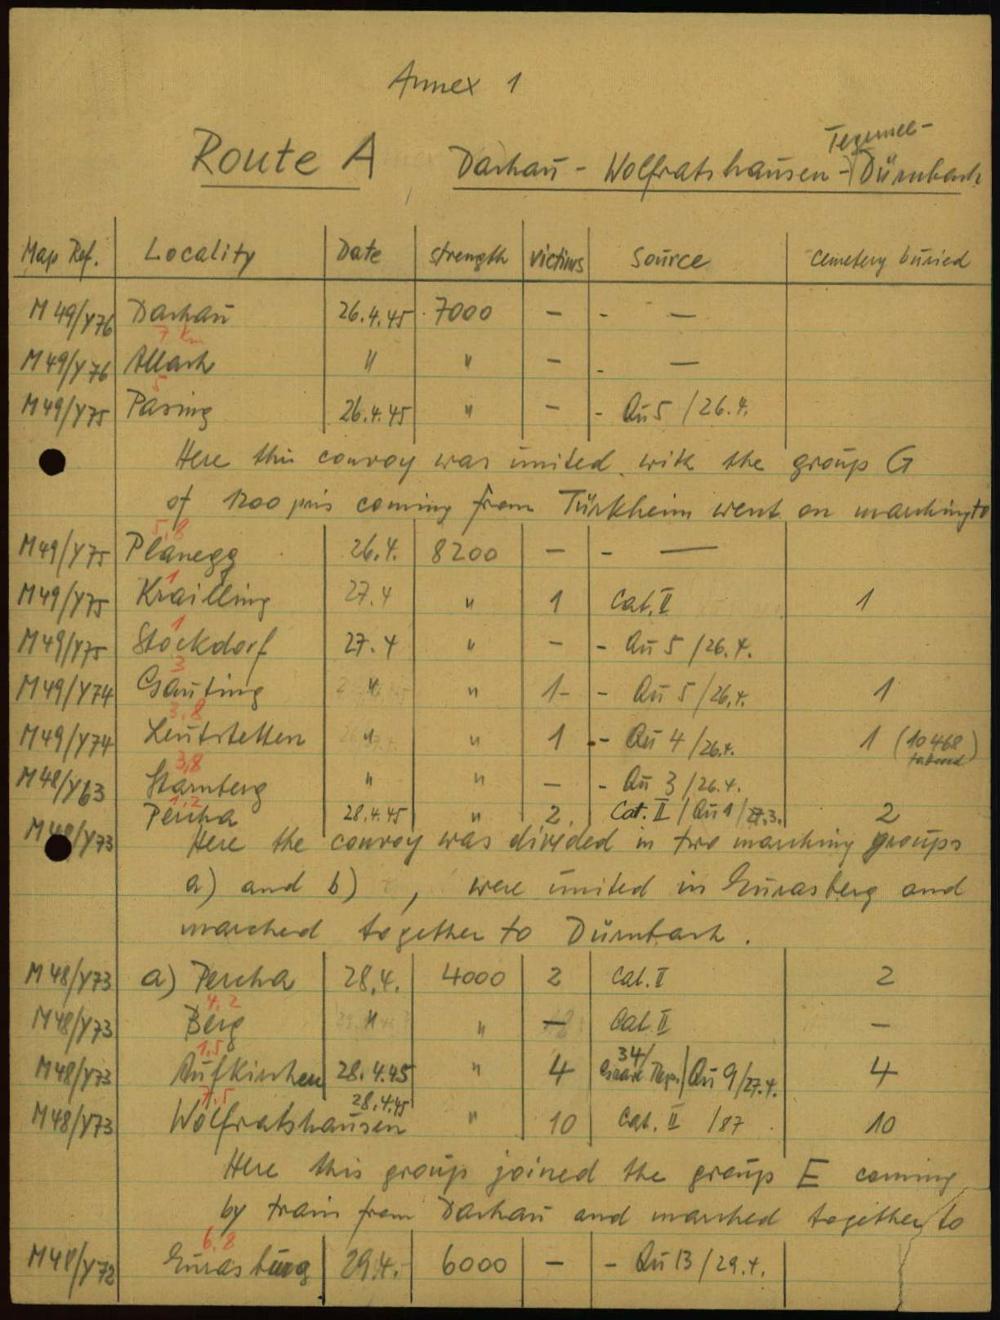 Annex 1
Tegernsee-
Route A Dachau - Wolfratshausen - Dürnbach
Map Ref. Locality Date strength victims source cemetery buried
M 49/Y76 Dachau 26.4.45 7000 - - -
7 km
M 49/Y76 Allach " " - - -
5
M 49/Y75 Pasing 26.4.45 " - - Qu 5 /26.4.
Here this convoy was united with the group G
of 1200 pris coming from Türkheim went on marching to
5,8
M49/Y75 Planegg 26.4. 8200 - - -
1
M49/Y75 Krailling 27.4 " 1 Cat. II 1
1
M49/Y75 Stockdorf 27.4 " - - Qu 5 /26.4.
3
M49/Y74 Gauting " " 1- - Qu 5 /26.4. 1
3,8
M49/Y74 Leutstetten " " 1 - Qu 4 /26.4. 1 (10468)
3,8
M48/Y63 Starnberg " " - - Qu 3 /26.4.
1,2
M48/Y73 Percha 28.4.45 " 2. Cat. II / Qu 1 / 2
Here the convoy was divided in two marching groups
a) and b) , were united in Eurasberg and
marched together to Dürnbach.
M48/Y73 a) Percha 28.4. 4000 2 Cat. II 2
4,2
M48/Y73 Berg " " - Cat. II -
1,5
M48/Y73 Aufkirchen 28.4.45 " 4 34/ /Qu 9/27.4. 4
7,5 28.4.45
M48/Y73 Wolfratshausen " 10 Cat. II /87 10
Here this group joined the group E coming
by train from Dachau and marched together to
6,8
M48/Y72 Eurasburg 29.4. 6000 - - Qu 13 /29.4.